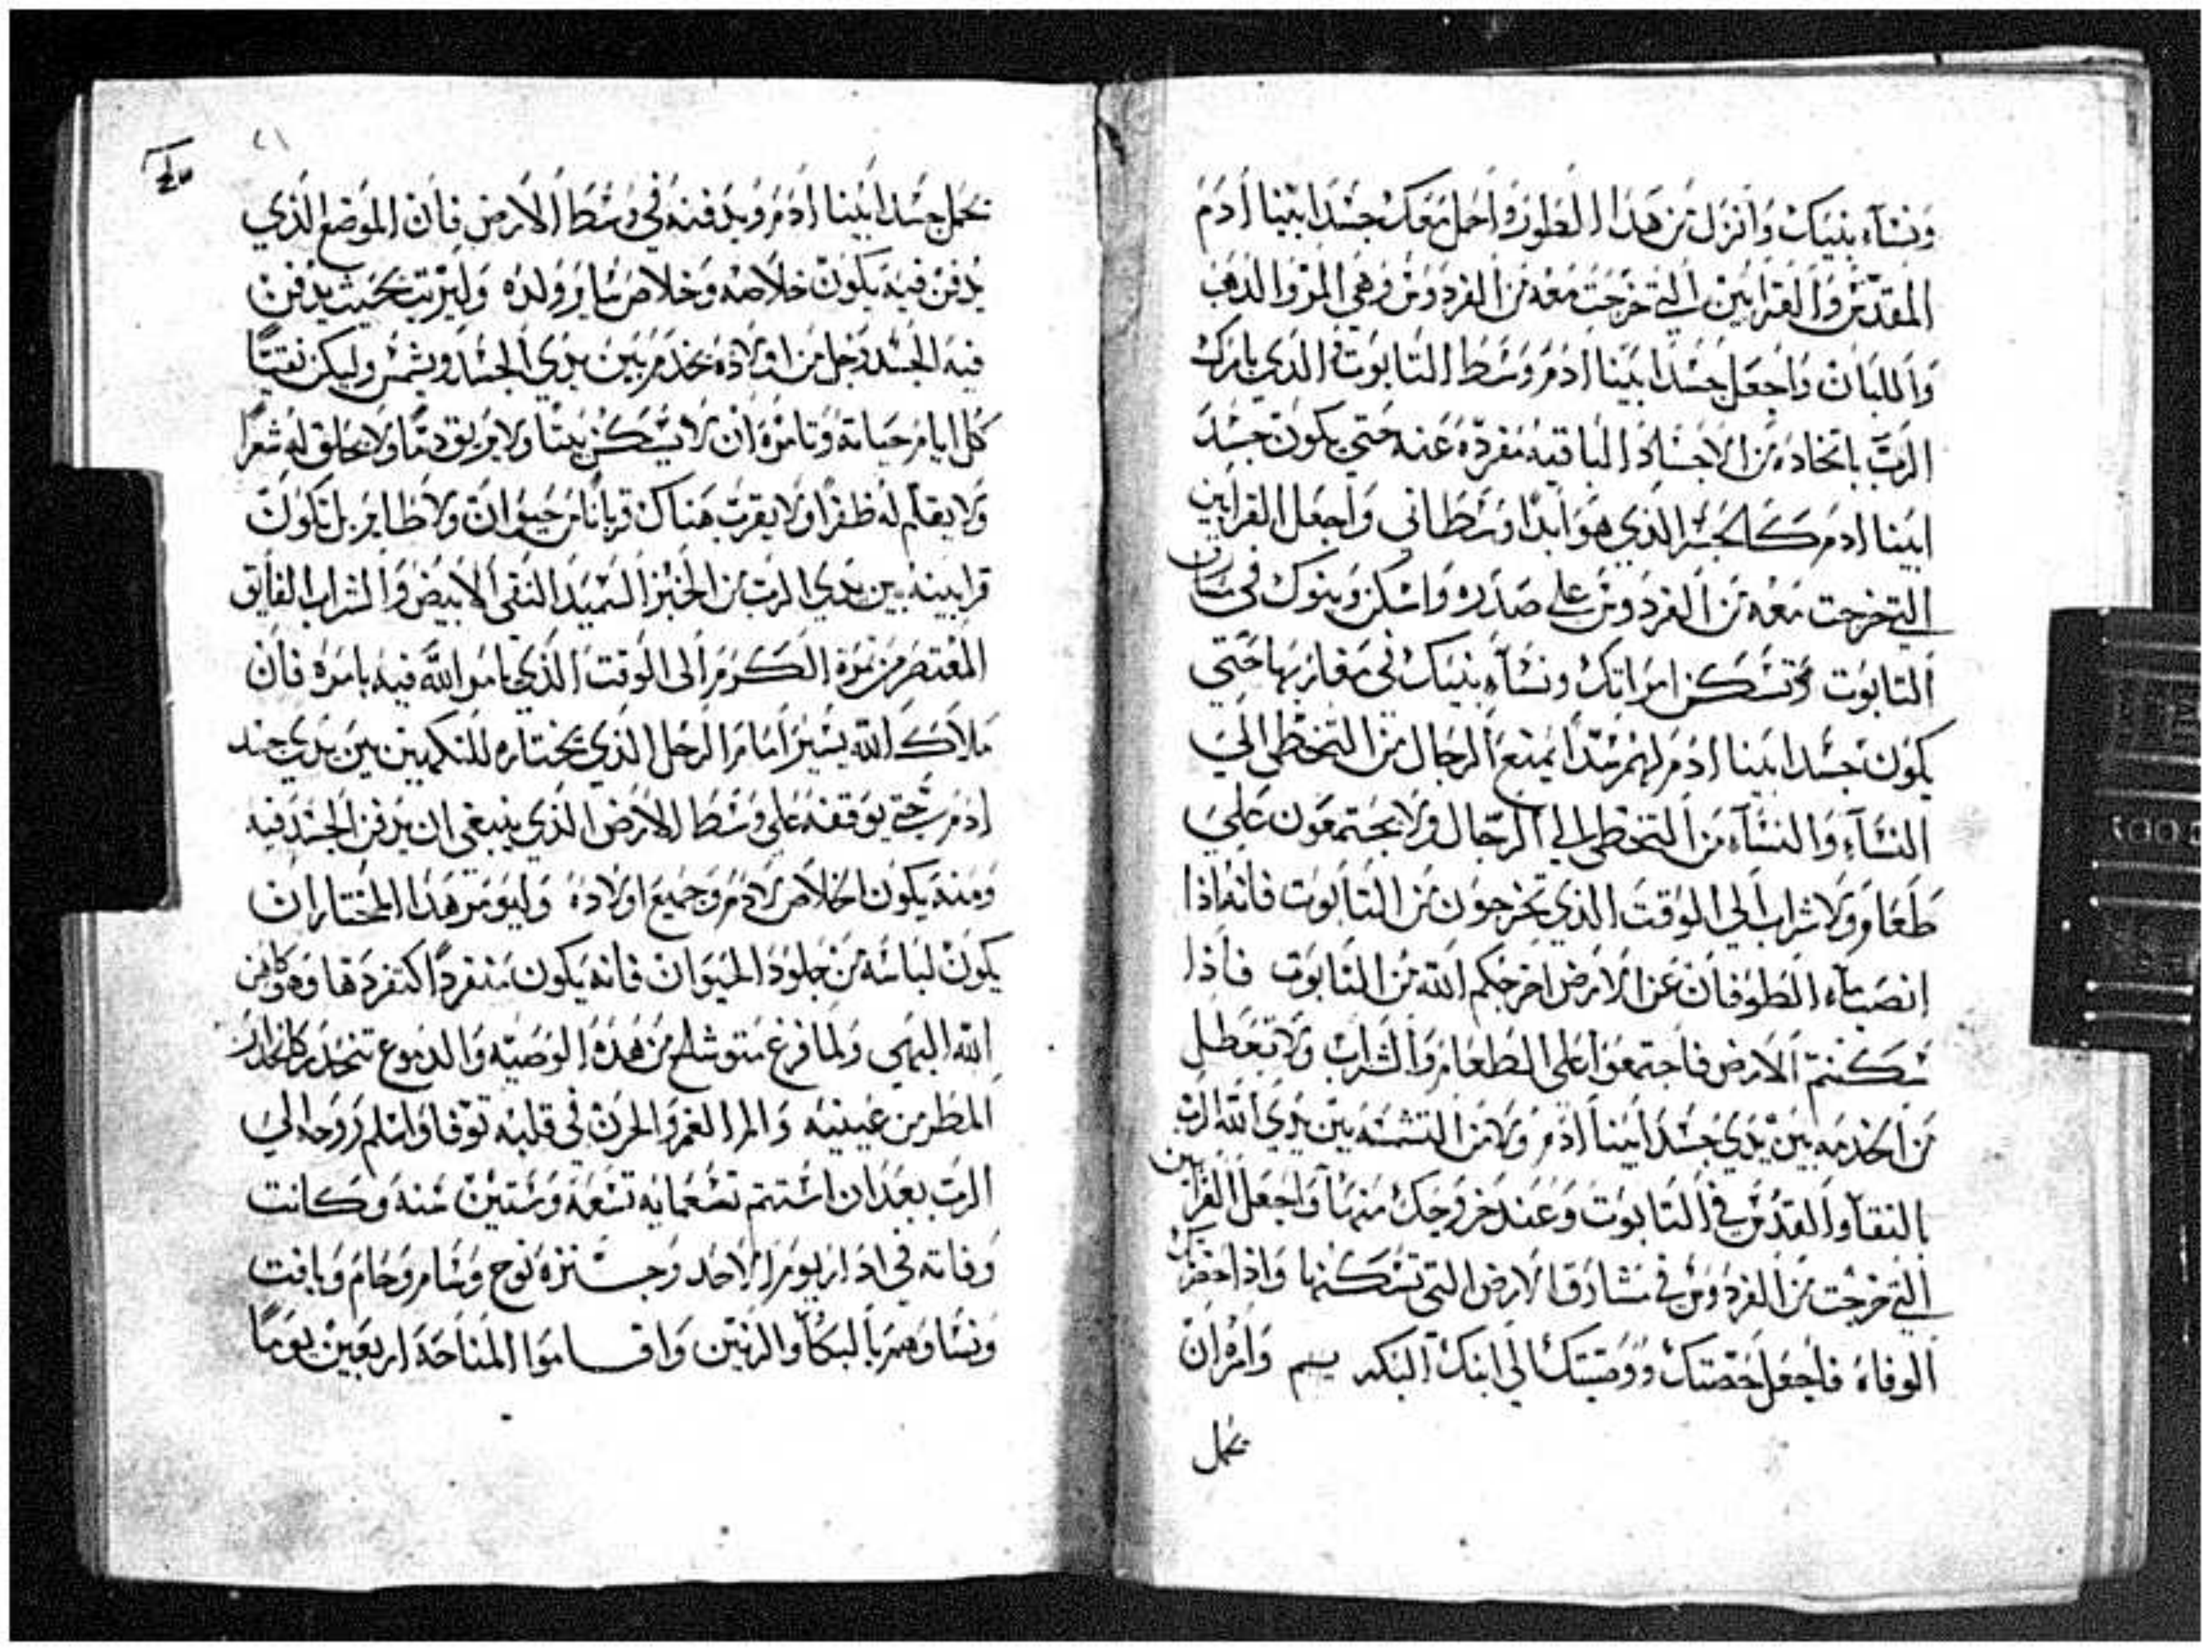 ونسآء بنيك وانزل من هذا الطور واحمل معك جسد ابينا ادم
المقدس والقرابين التي خرجت معه من الفردوس وهي المر والدهب
واللبان واجعل جسد ابينا ادم وسط التابوت الذي بارك
الرب باتخاده من الاجساد الباقيه مفرده عنه حتي يكون جسد
ابينا ادم كالجسر الذي هو ابدا وسطاني واجعل القرابين
التي خرجت معه من الفردوس علي صدره واسكن وبنوك في شارق
التابوت وتسكن امراتك ونسآء بنيك في مغاربها حتي
يكون جسد ابينا ادم لهم سدا يمنع الرجال من التخطي الي
النسآء والنسآء من التخطي الي الرجال ولا يجتمعون علي
طعام ولا شراب الي الوقت الذي تخرجون من التابوت فانه اذا
انصب مآء الطوفان عن الارض اخرجكم الله من التابوت فاذا
سكنتم الارض فاجتمعوا علي الطعام والشراب ولا تعطل
من الخدمه بين يدي جسد ابينا ادم ولا من التشمسه بين يدي الله الرب
بالنقآ والقدس في التابوت وعند خروجك منها واجعل القرابين
التي خرجت من الفردوس في مشارق الارض التي تسكنها واذا حضرتك
الوفاه فاجعل حصتك ووصيتك الي ابنك البكر سيم وامره ان
يحمل
٢١
يحمل جسد ابينا ادم ويدفنه في وسط الارض فان الموضع الذي
يدفن فيه يكون خلاصه وخلاص ساير ولده وليرتب بحيث يدفن
فيه الجسد رجل من اولاده يخدم بين يدي الجسد ويشمس وليكن نقيا
كل ايام حياته وتامره ان لا يسكن بيتا ولا يريق دما ولا يحلق له شعرا
ولا يقلم له ظفرا ولا يقرب هناك قربانا من حيوان ولا طاير بل تكون
قرابينه بين يدي الرب من الخبز السميد النقي الابيض والشراب الفايق
المعتصر من ثمرة الكرم الى الوقت الذي يامر الله فيه بامره فان
ملاك الله يسير امام الرجل الذي يختاره للتكهين بين يدي جسد
ادم حتي يوقفه علي وسط الارض الذي ينبغي ان يدفن الجسد فيه
ومنه يكون الخلاص لادم وجميع اولاده وليومر هذا المختار ان
يكون لباسه من جلود الحيوان فانه يكون منفردا كتفردها وهو كاهن
الله البهي ولما فرغ متوشلح من هذه الوصيه والدموع تنحدر كانحدار
المطر من عينيه والم الغم والحزن في قلبه توفا واسلم روحه الي
الرب بعد ان استتم تسعمايه تسعة وستين سنه وكانت
وفاته في ادار يوم الاحد وجنزه نوح وسام وحام ويافت
ونساوهم بالبكآ والرنين واقاموا المناحة اربعين يوما